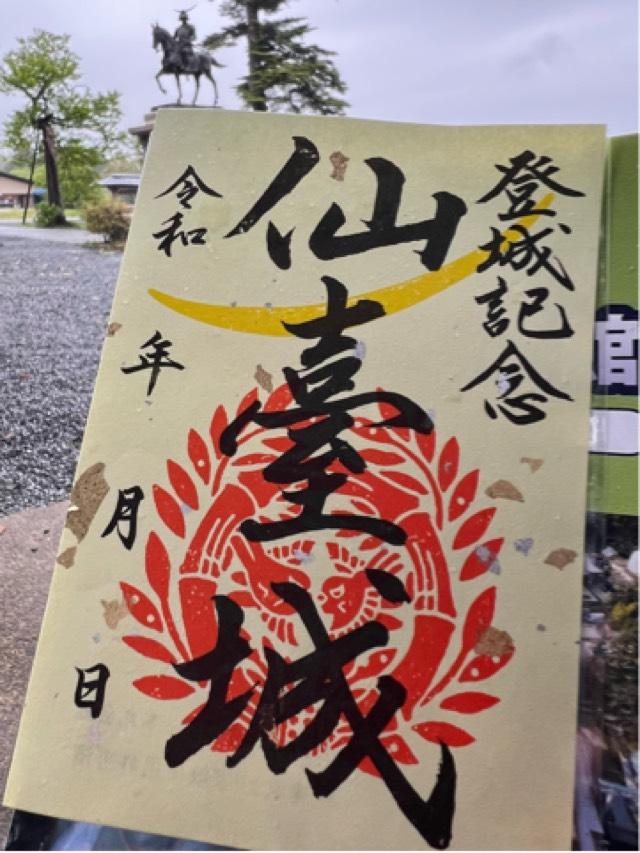 登城記念
仙臺城
令和 年 月 日
館